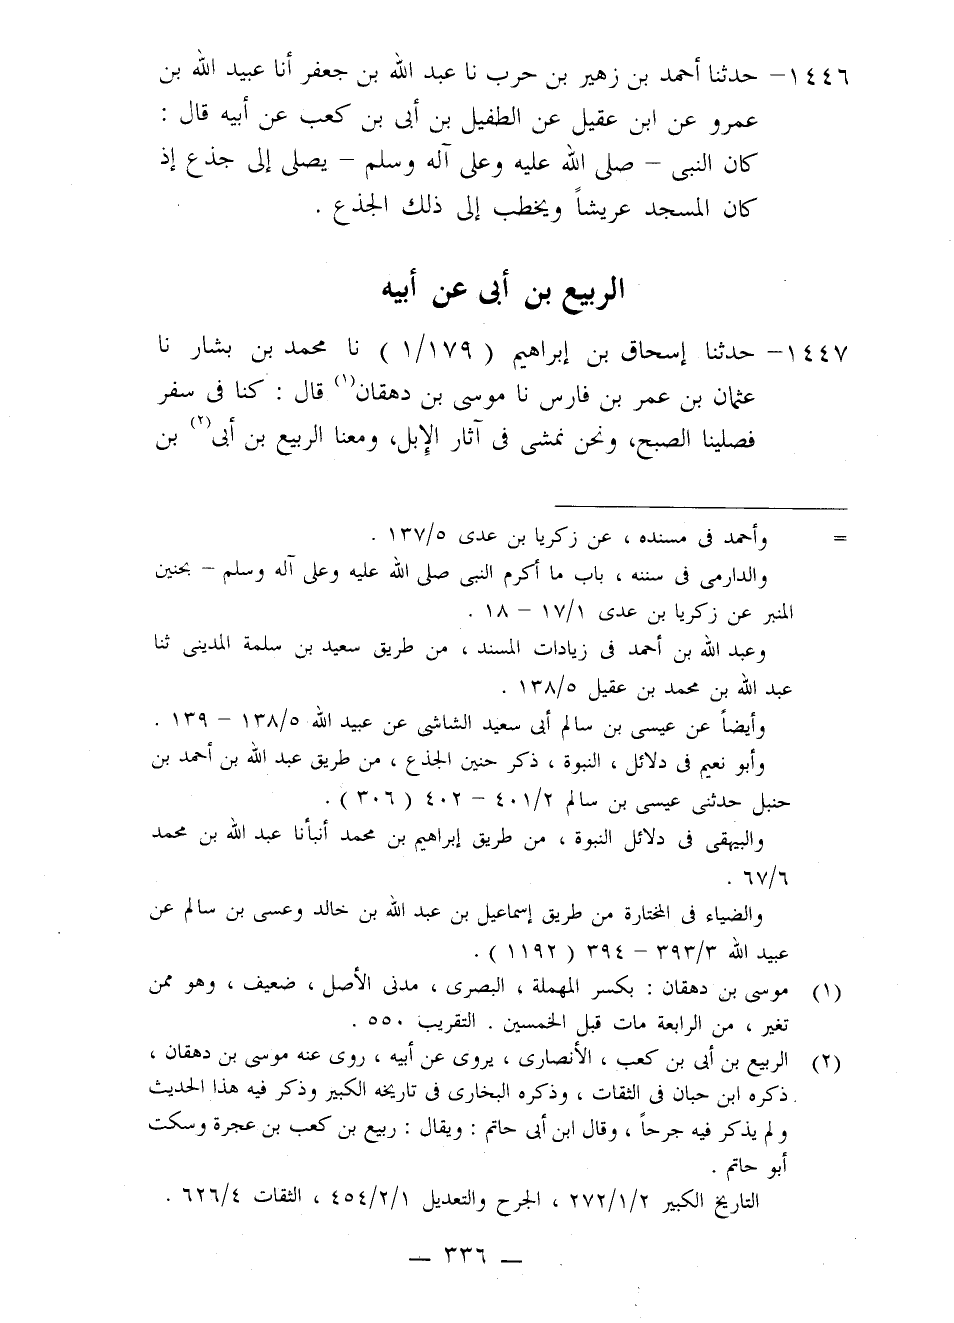 ١٤٤٦– حدثنا أحمد بن زهير بن حرب نا عبد الله بن جعفر أنا عبيد الله بن
عمرو عن ابن عقيل عن الطفيل بن أبى بن كعب عن أبيه قال :
كان النبى – صلى الله عليه وعلى آله وسلم – يصلى إلى جذع إذ
كان المسجد عريشاً ويخطب إلى ذلك الجذع .
الربيع بن أبى عن أبيه
١٤٤٧– حدثنا إسحاق بن إبراهيم ( ١/١٧٩ ) نا محمد بن بشار نا
عثمان بن عمر بن فارس نا موسى بن دهقان(١) قال : كنا فى سفر
فصلينا الصبح، ونحن نمشى فى آثار الإبل، ومعنا الربيع بن أبى(٢) بن
= وأحمد فى مسنده ، عن زكريا بن عدى ١٣٧/٥ .
والدارمى فى سننه ، باب ما أكرم النبى صلى الله عليه وعلى آله وسلم – بحنين
المنبر عن زكريا بن عدى ١٧/١ – ١٨ .
وعبد الله بن أحمد فى زيادات المسند ، من طريق سعيد بن سلمة المدينى ثنا
عبد الله بن محمد بن عقيل ١٣٨/٥ .
وأيضاً عن عيسى بن سالم أبى سعيد الشاشى عن عبيد الله ١٣٨/٥ – ١٣٩ .
وأبو نعيم فى دلائل ، النبوة ، ذكر حنين الجذع ، من طريق عبد الله بن أحمد بن
حنبل حدثنى عيسى بن سالم ٤٠١/٢ – ٤٠٢ ( ٣٠٦ ) .
والبيهقى فى دلائل النبوة ، من طريق إبراهيم بن محمد أنبأنا عبد الله بن محمد
٦٧/٦ .
والضياء فى المختارة من طريق إسماعيل بن عبد الله بن خالد وعسى بن سالم عن
عبيد الله ٣٩٣/٣ – ٣٩٤ ( ١١٩٢ ) .
(١) موسى بن دهقان : بكسر المهملة ، البصرى ، مدنى الأصل ، ضعيف ، وهو ممن
تغير ، من الرابعة مات قبل الخمسين . التقريب ٥٥٠ .
(٢) الربيع بن أبى بن كعب ، الأنصارى ، يروى عن أبيه ، روى عنه موسى بن دهقان ،
ذكره ابن حبان فى الثقات ، وذكره البخارى فى تاريخه الكبير وذكر فيه هذا الحديث
ولم يذكر فيه جرحاً ، وقال ابن أبى حاتم : ويقال : ربيع بن كعب بن عجرة وسكت
أبو حاتم .
التاريخ الكبير ٢٧٢/١/٢ ، الجرح والتعديل ٤٥٤/٢/١ ، الثقات ٦٢٦/٤ .
— ٣٣٦ —